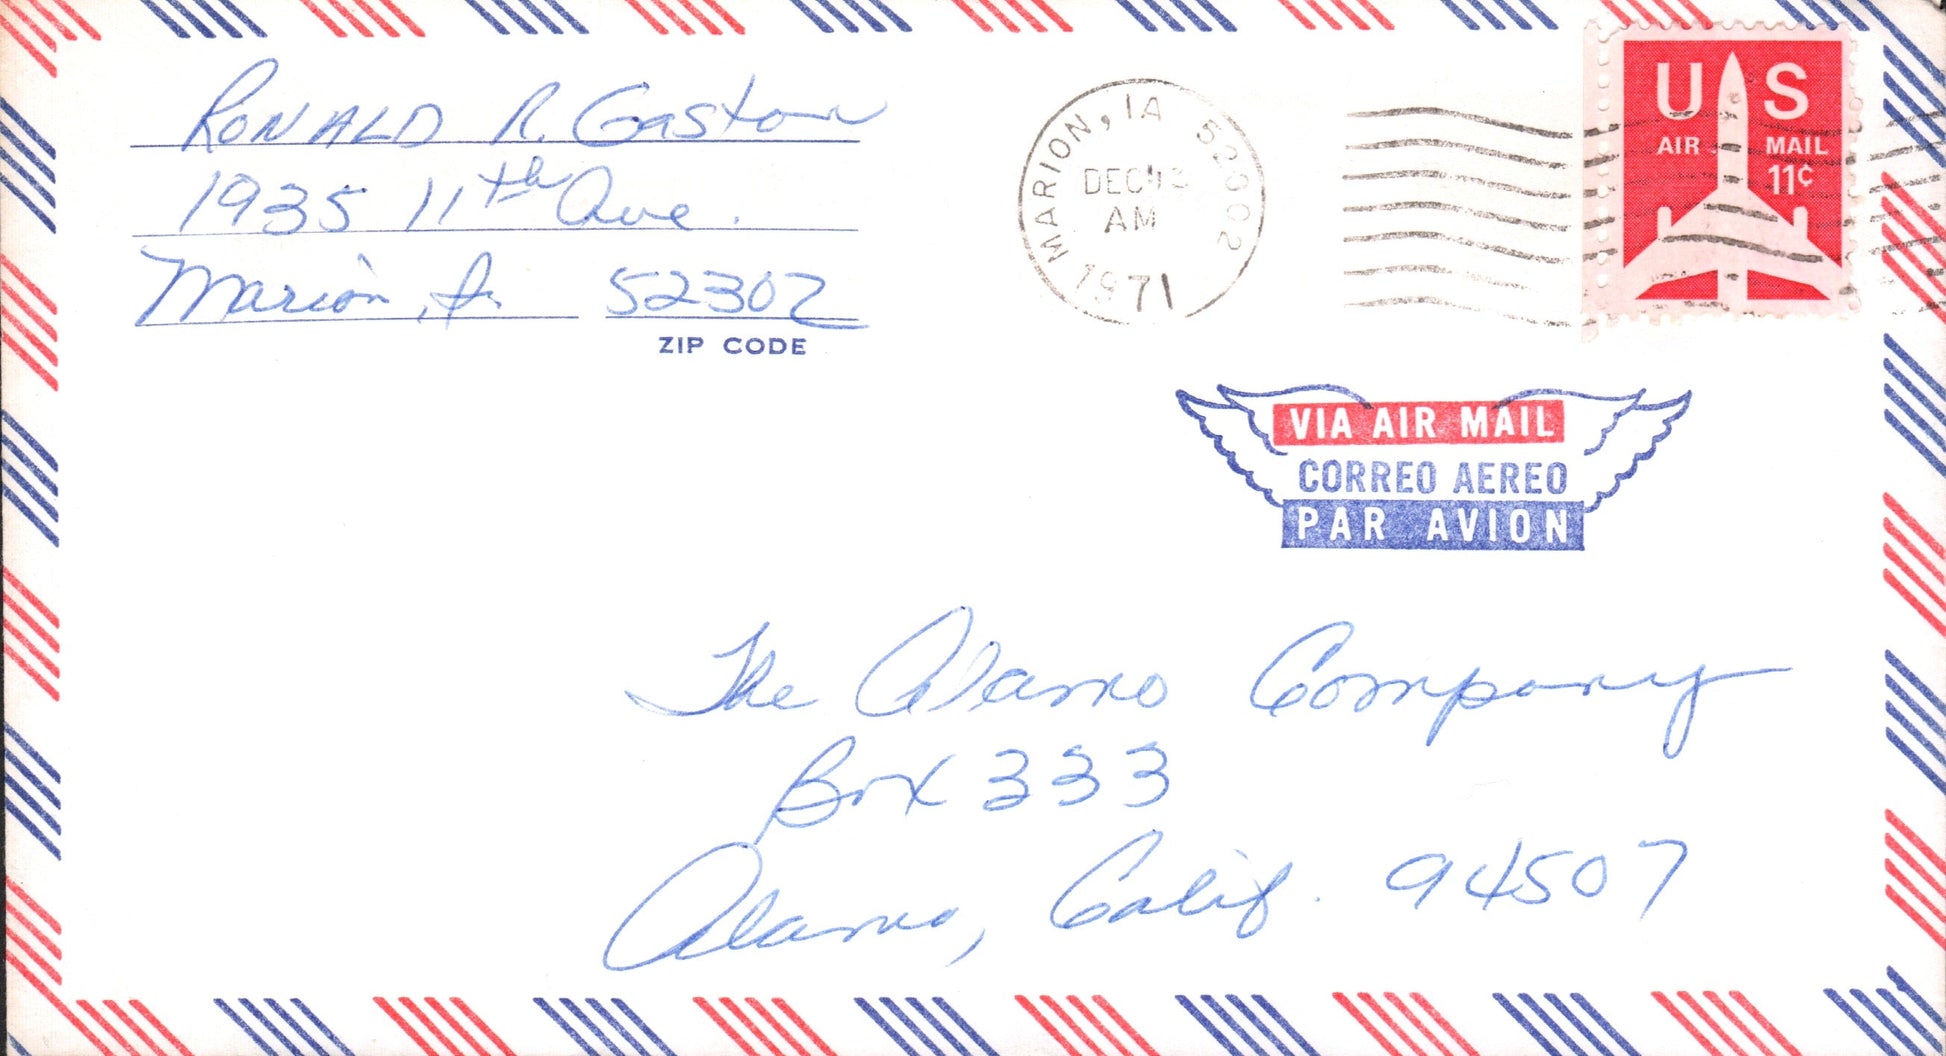 RONALD R. Gaston
1935 11th Ave.
Marion, Ia. 52302
ZIP CODE
MARION, IA 52302
DEC 13
AM
1971
U S
AIR MAIL
11¢
VIA AIR MAIL
CORREO AEREO
PAR AVION
The Alamo Company
Box 333
Alamo, Calif. 94507